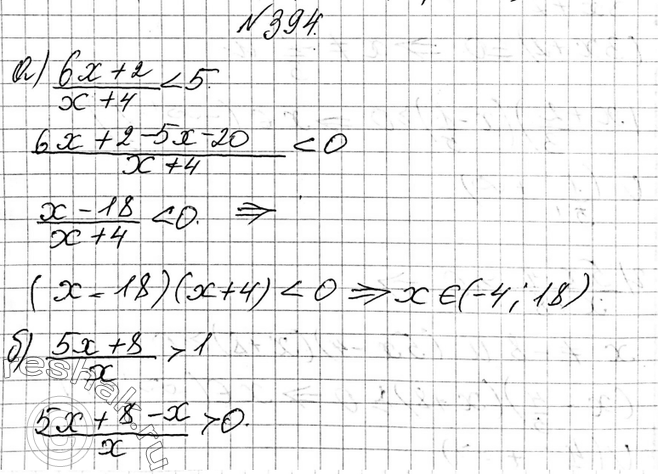 №394.
а) (6x+2)/(x+4) < 5.
(6x+2-5x-20)/(x+4) < 0
(x-18)/(x+4) < 0. ⇒
(x-18)(x+4) < 0 ⇒ x∈(-4; 18)
б) (5x+8)/x > 1
(5x+8-x)/x > 0.
reshak.ru